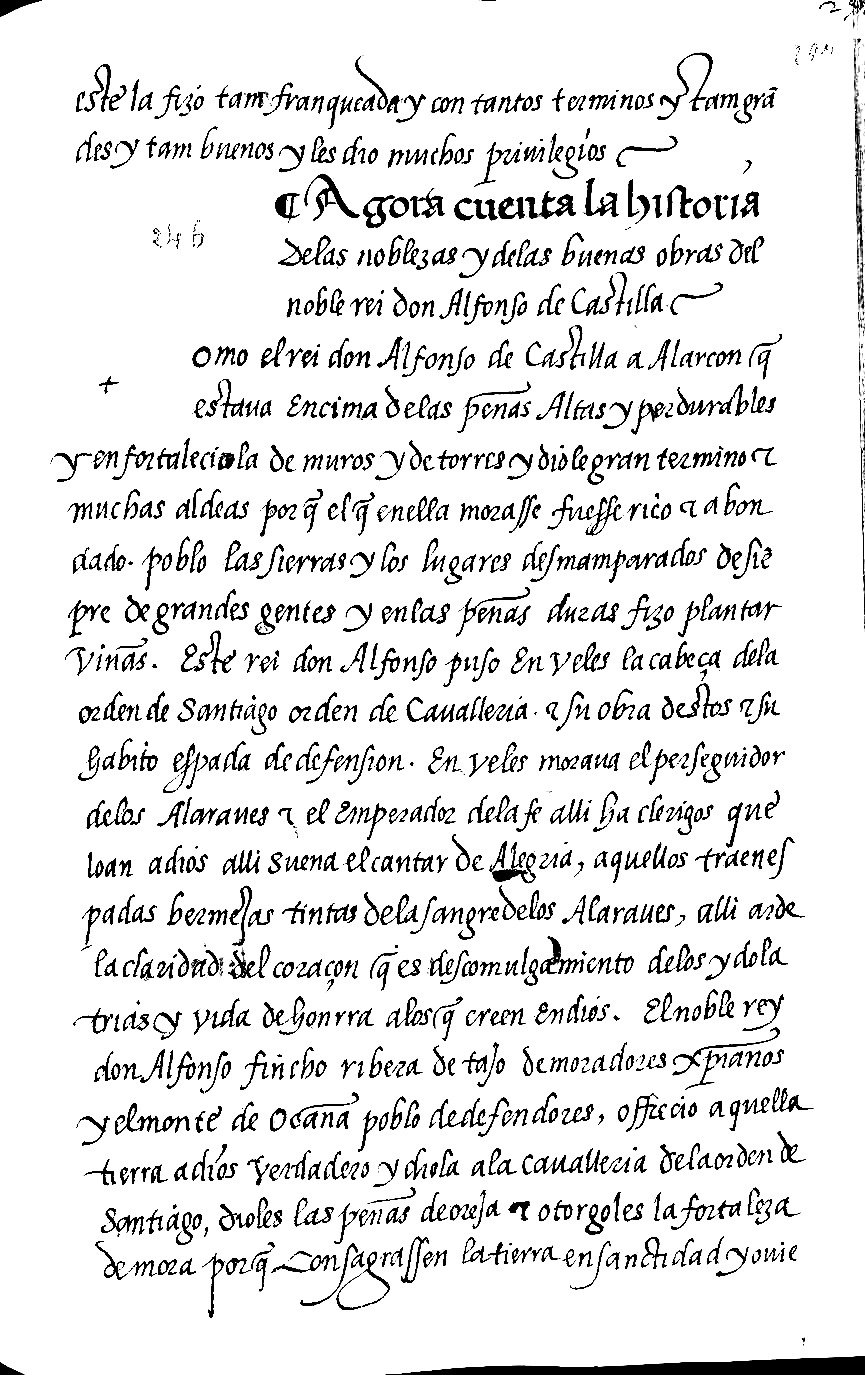 este la fizo tam franqueada y con tantos terminos y tam grā
des y tam buenos y les dio muchos privilegios
¶ Agora cuenta la historia
246
Delas noblezas y delas buenas obras del
noble rei don Alfonso de Castilla
omo el rei don Alfonso de Castilla a Alarcon q̄
+
estaua Encima delas peñas Altas y perdurables
y enfortaleciola de muros y de torres y diole gran termino ⁊
muchas aldeas porq̄ el q̄ enella morasse fuesse rico ⁊ abon
dado. poblo las sierras y los lugares desmamparados de siē
pre de grandes gentes y en las peñas duras fizo plantar
viñas. Este rei don Alfonso puso En veles la cabeça dela
orden de Santiago orden de Cavalleria. ⁊ su obra destos ⁊ su
habito espada de defension. En veles moraua el perseguidor
delos Alaraves ⁊ el Emperador dela fe alli ha clerigos que
loan adios alli suena el cantar de Alegria, aquellos traen es
padas bermejas tintas dela sangre delos Alaraues, alli arde
la claridad del coraçon q̄ es descomulgamiento delos ydola
trias y vida de honrra alos q̄ creen En dios. El noble rey
don Alfonso finchó ribera de tajo de moradores xp̄ianos
y el monte de Ocaña poblo de defendores, offrecio aquella
tierra adios verdadero y diola ala cavalleria dela orden de
Santiago, dioles las peñas de oreja ⁊ otorgoles la fortaleza
de mora porq̄ Consagrassen la tierra en sanctidad y ouie